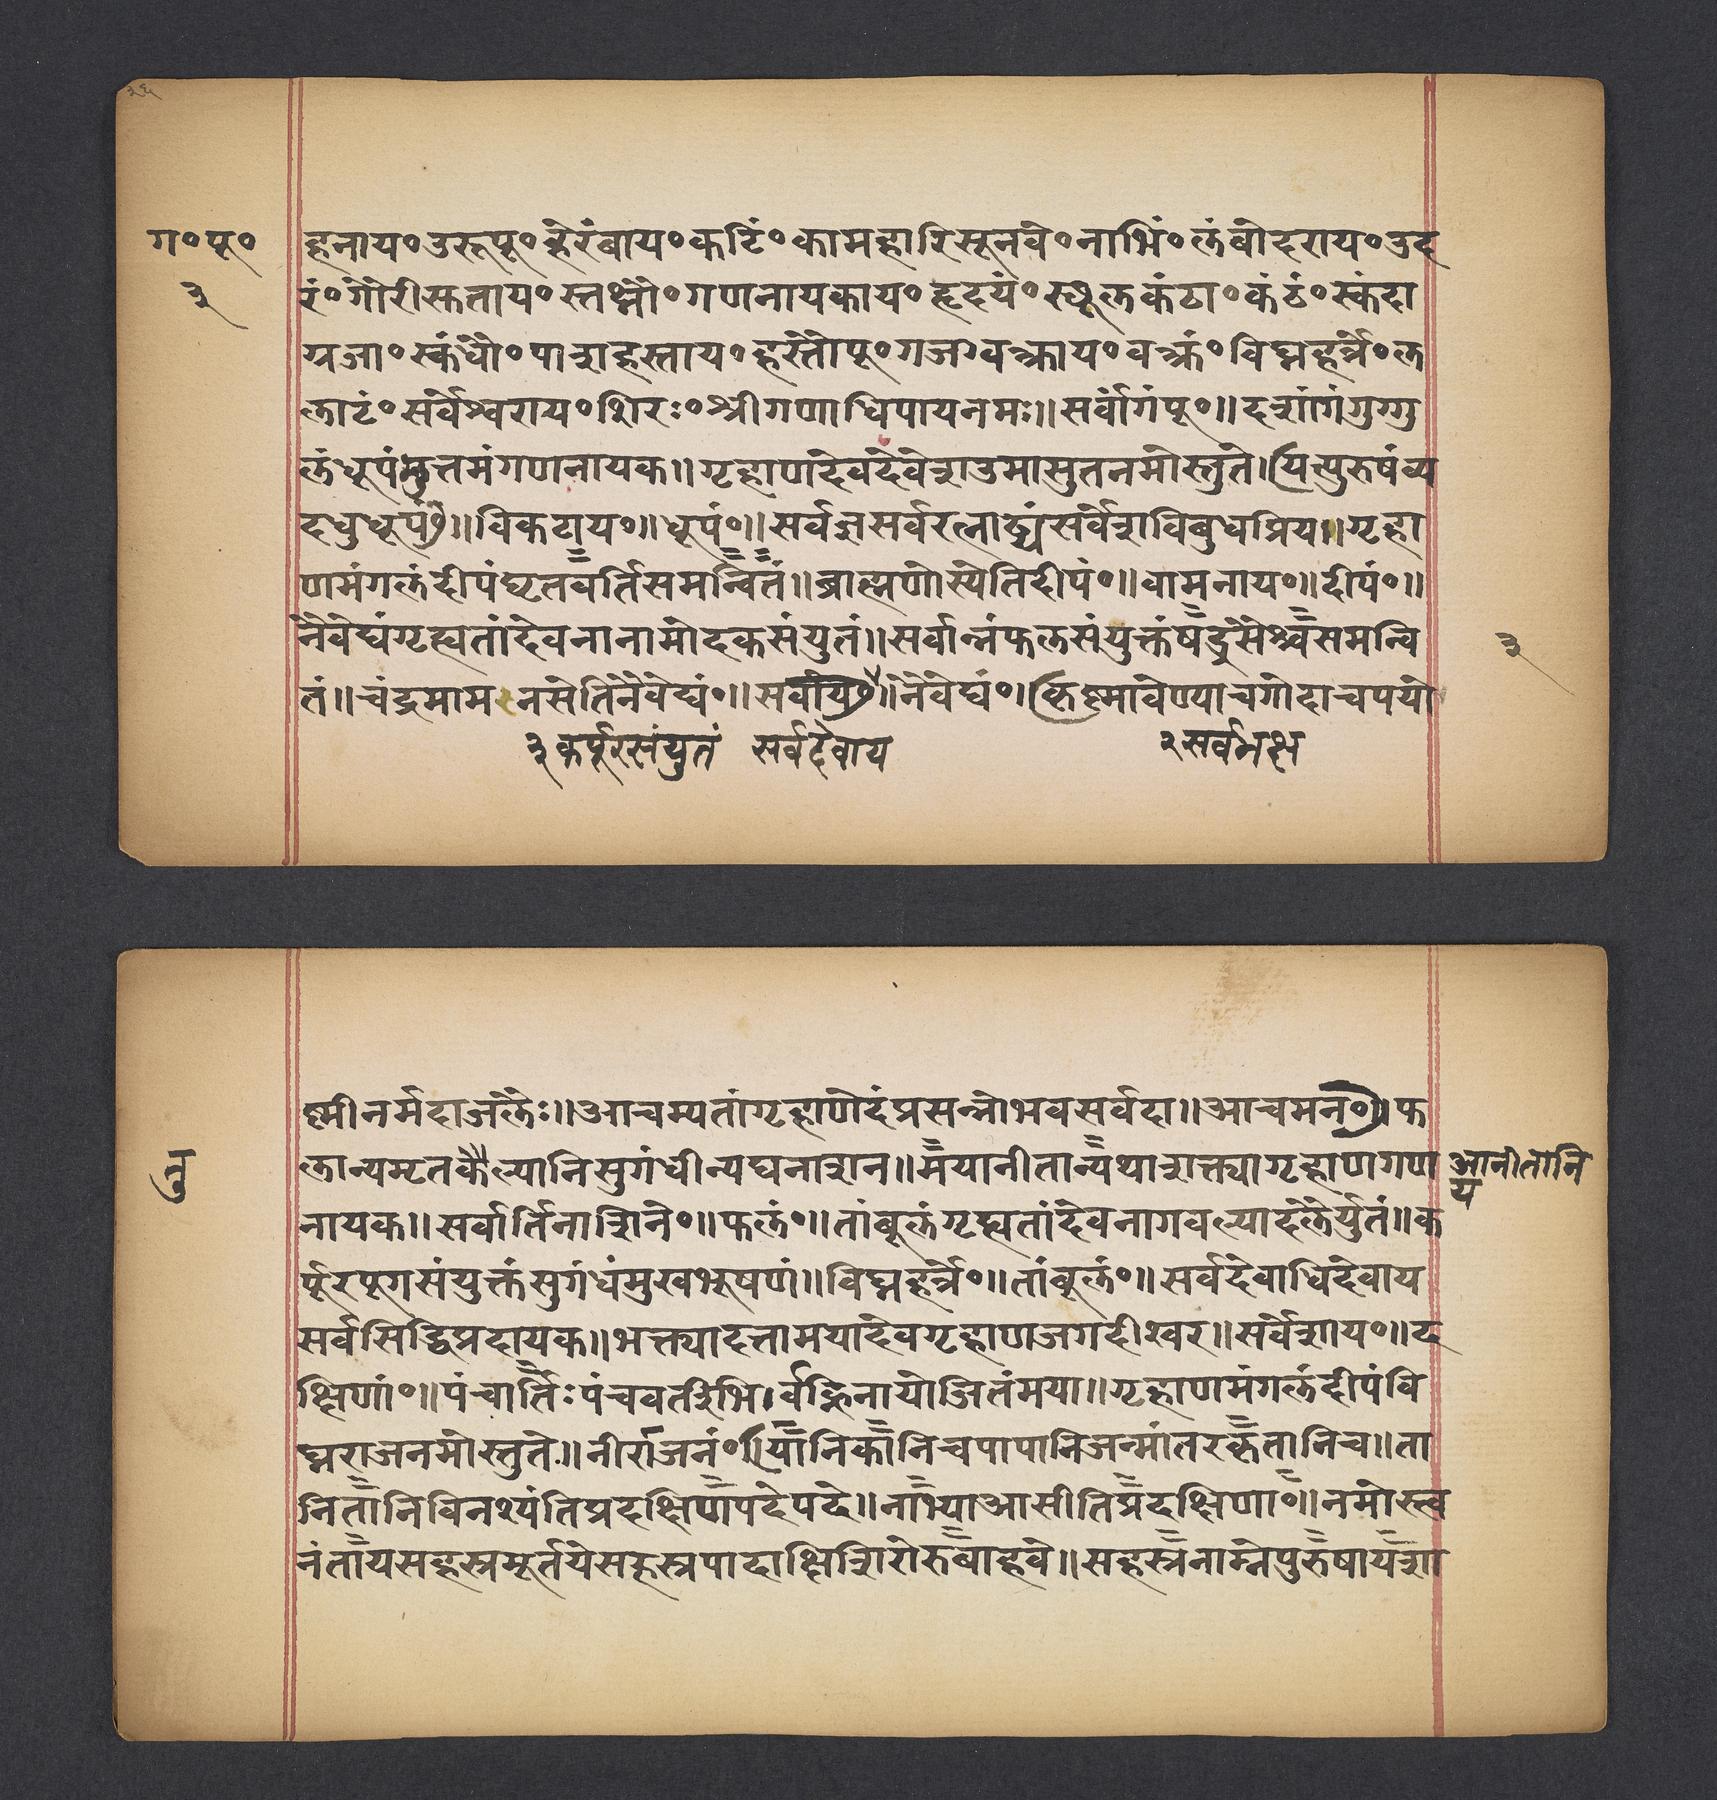 ग॰पू॰
३
हनाय॰उरूपू॰हेरंबाय॰कटिं॰कामहारिसूनवे॰नाभिं॰लंबोदराय॰उद
रं॰गौरीस्तताय॰स्तनौ॰गणनायकाय॰हृदयं॰स्थूलकंठा॰कंठं॰स्कंदा
ग्रजा॰स्कंधौ॰पाशहस्ताय॰हस्तौपू॰गजवक्त्राय॰वक्त्रं॰विघ्नहर्त्रे॰ल
लाटं॰सर्वेश्वराय॰शिरः॰श्रीगणाधिपायनमः॥सर्वांगंपू॰॥दशांगंगुग्गु
लंधूपंमुत्तमंगणनायक॥गृहाणदेवदेवेशउमासुतनमोस्तुते।यत्पुरुषंव्य
दधुधूपं॥विकटाय॰॥धूपं॰॥सर्वज्ञसर्वरत्नाढ्यंसर्वेशविबुधप्रिय॥गृहा
णमंगलंदीपंघृतवर्तिसमन्वितं॥ब्राह्मणोस्येतिदीपं॰॥वामनाय॰॥दीपं॰॥
नैवेद्यंगृह्यतांदेवनानामोदकसंयुतं॥सर्वान्नंफलसंयुक्तंषड्रसैश्चसमन्वि
तं॥चंद्रमाम नसेतिनैवेद्यं॰॥सर्वाय॥नैवेद्यं॰।कृष्णावेण्याचगोदाचपयो
३कर्पूरसंयुतं सर्वदेवाय २सर्वभक्ष
३
ष्णीनर्मदाजलैः॥आचम्यतांगृहाणेदंप्रसन्नोभवसर्वदा॥आचमन॰॥फ
लान्यमृतकल्पानिसुगंधीन्यघनाशन॥मयानीतान्यथाशक्त्यागृहाणगण
आनीतानि
य
नायक॥सर्वार्तिनाशिने॰॥फलं॰॥तांबूलंगृह्यतांदेवनागवल्यादलैर्युतं॥क
र्पूरपूगसंयुक्तंसुगंधंमुखभूषणं॥विघ्नहर्त्रे॰॥तांबूलं॰॥सर्वदेवाधिदेवाय
सर्वसिद्धिप्रदायक॥भक्त्यादत्तामयादेवगृहाणजगदीश्वर॥सर्वेशाय॰॥द
क्षिणां॰॥पंचार्तिःपंचवर्तीभि।र्वह्निनायोजितंमया॥गृहाणमंगलंदीपंवि
घ्नराजनमोस्तुते॥नीराजनं॰॥यानिकानिचपापानिजन्मांतरकृतानिच॥ता
नितानिविनश्यंतिप्रदक्षिणपदेपदे॥नाभ्याआसीतिप्रदक्षिणा॰॥नमोस्त्व
नंतायसहस्रमूर्तयेसहस्रपादाक्षिशिरोरुबाहवे॥सहस्रनाम्नेपुरुषायशा